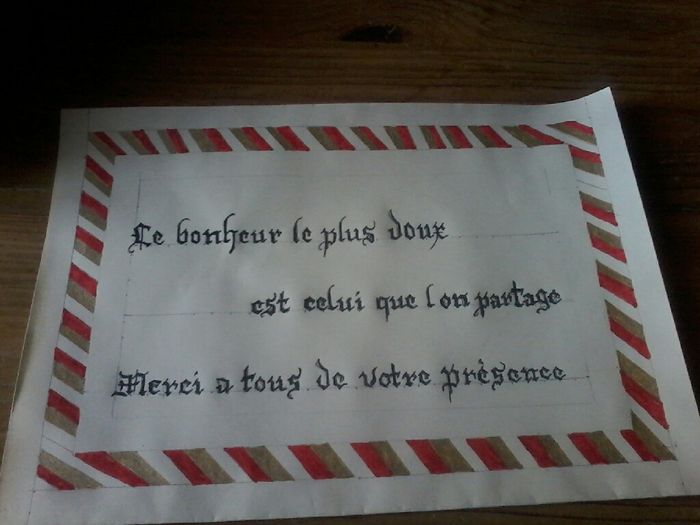 Le bonheur le plus doux
est celui que l on partage
Merci a tous de votre prèsence